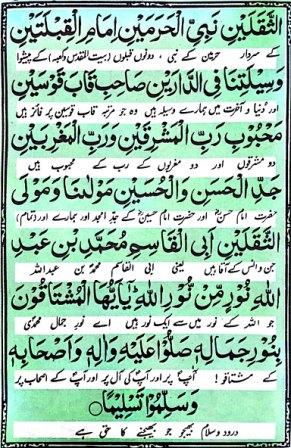 الثَّقَلَيْنِ نَبِيِّ الْحَرَمَيْنِ اِمَامِ الْقِبْلَتَيْنِ
کے سردار حرمین کے نبی ، دونوں قبلوں (بیت المقدس وکعبہ) کے پیشوا
وَسِيْلَتِنَا فِي الدَّارَيْنِ صَاحِبِ قَابَ قَوْسَيْنِ
اور دُنیا و آخرت میں ہمارے وسیلہ ہیں وہ جو مرتبہ قاب قوسین پر فائز ہیں
مَحْبُوْبِ رَبِّ الْمَشْرِقَيْنِ وَرَبِّ الْمَغْرِبَيْنِ
دو مشرقوں اور دو مغربوں کے رب کے محبوب ہیں
جَدِّ الْحَسَنِ وَالْحُسَيْنِ مَوْلٰنَا وَمَوْلَى
حضرت امام حسنؓ اور حضرت امام حسینؓ کے جدِّ امجد اور ہمارے اور (تمام)
الثَّقَلَيْنِ اَبِي الْقَاسِمِ مُحَمَّدِ بْنِ عَبْدِ
جن وانس کے آقا ہیں یعنی ابی القاسم محمدؐ بن عبداللہ
اللّٰهِ نُوْرٍ مِّنْ نُّوْرِ اللّٰهِ يٰٓاَيُّهَا الْمُشْتَاقُوْنَ
جو اللہ کے نور میں سے ایک نور ہیں اے نورِ جمالِ محمدیؐ
بِنُوْرِ جَمَالِهٖ صَلُّوْا عَلَيْهِ وَاٰلِهٖ وَاَصْحَابِهٖ
کے مشتاقو! آپؐ پر اور آپؐ کی آل پر اور آپؐ کے اصحاب پر
وَسَلِّمُوْا تَسْلِيْمًا
درود وسلام بھیجو جو بھیجنے کا حق ہے